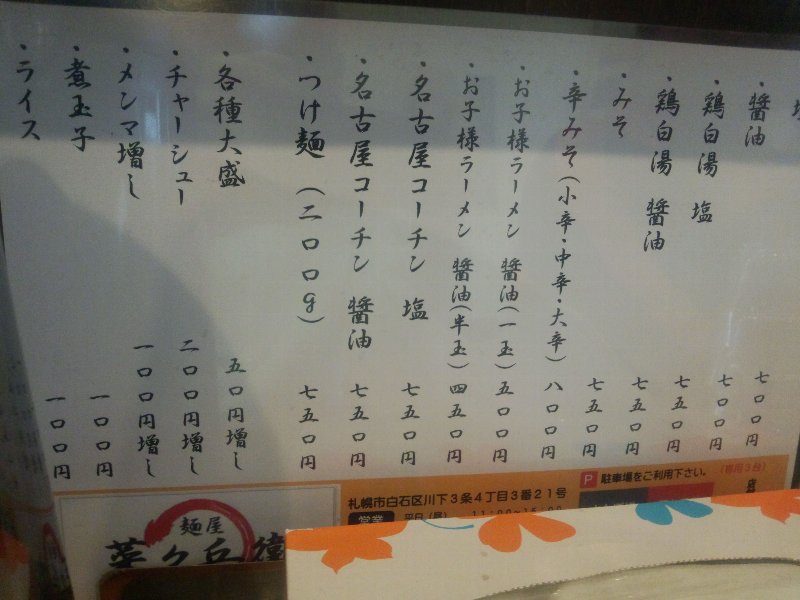 七〇〇円
・醤油 七〇〇円
・鶏白湯 塩 七五〇円
・鶏白湯 醤油 七五〇円
・みそ 七五〇円
・辛みそ(小辛・中辛・大辛) 八〇〇円
・お子様ラーメン 醤油(一玉) 五〇〇円
・お子様ラーメン 醤油(半玉) 四五〇円
・名古屋コーチン 塩 七五〇円
・名古屋コーチン 醤油 七五〇円
・つけ麺(二〇〇g) 七五〇円
・各種大盛 五〇円増し
・チャーシュー 二〇〇円増し
・メンマ増し 一〇〇円増し
・煮玉子 一〇〇円
・ライス 一〇〇円
P 駐車場をご利用下さい。(専用3台)
札幌市白石区川下3条4丁目3番21号
営業 平日(昼) 11:00~15:00
麺屋
菜々兵衛